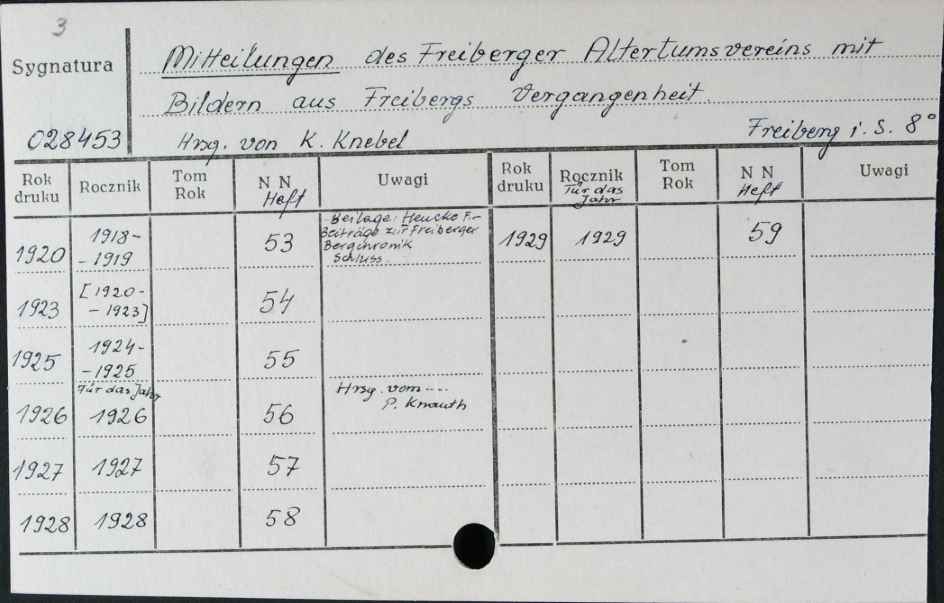 3
Sygnatura
Mitteilungen des Freiberger Altertumsvereins mit
Bildern aus Freibergs Vergangenheit.
028453 Hrsg. von K. Knebel Freiberg i. S. 8°
Rok druku Rocznik Tom Rok N N Heft Uwagi Rok druku Rocznik Für das Jahr Tom Rok N N Heft Uwagi
1920 1918-
-1919 53 Beilage: Heucke F.-
Beiträge zur Freiberger
Bergchronik
Schluss. 1929 1929 59
1923 [1920-
-1923] 54
1925 1924-
-1925 55
1926 Für das Jahr
1926 56 Hrsg. vom ---
P. Knauth
1927 1927 57
1928 1928 58